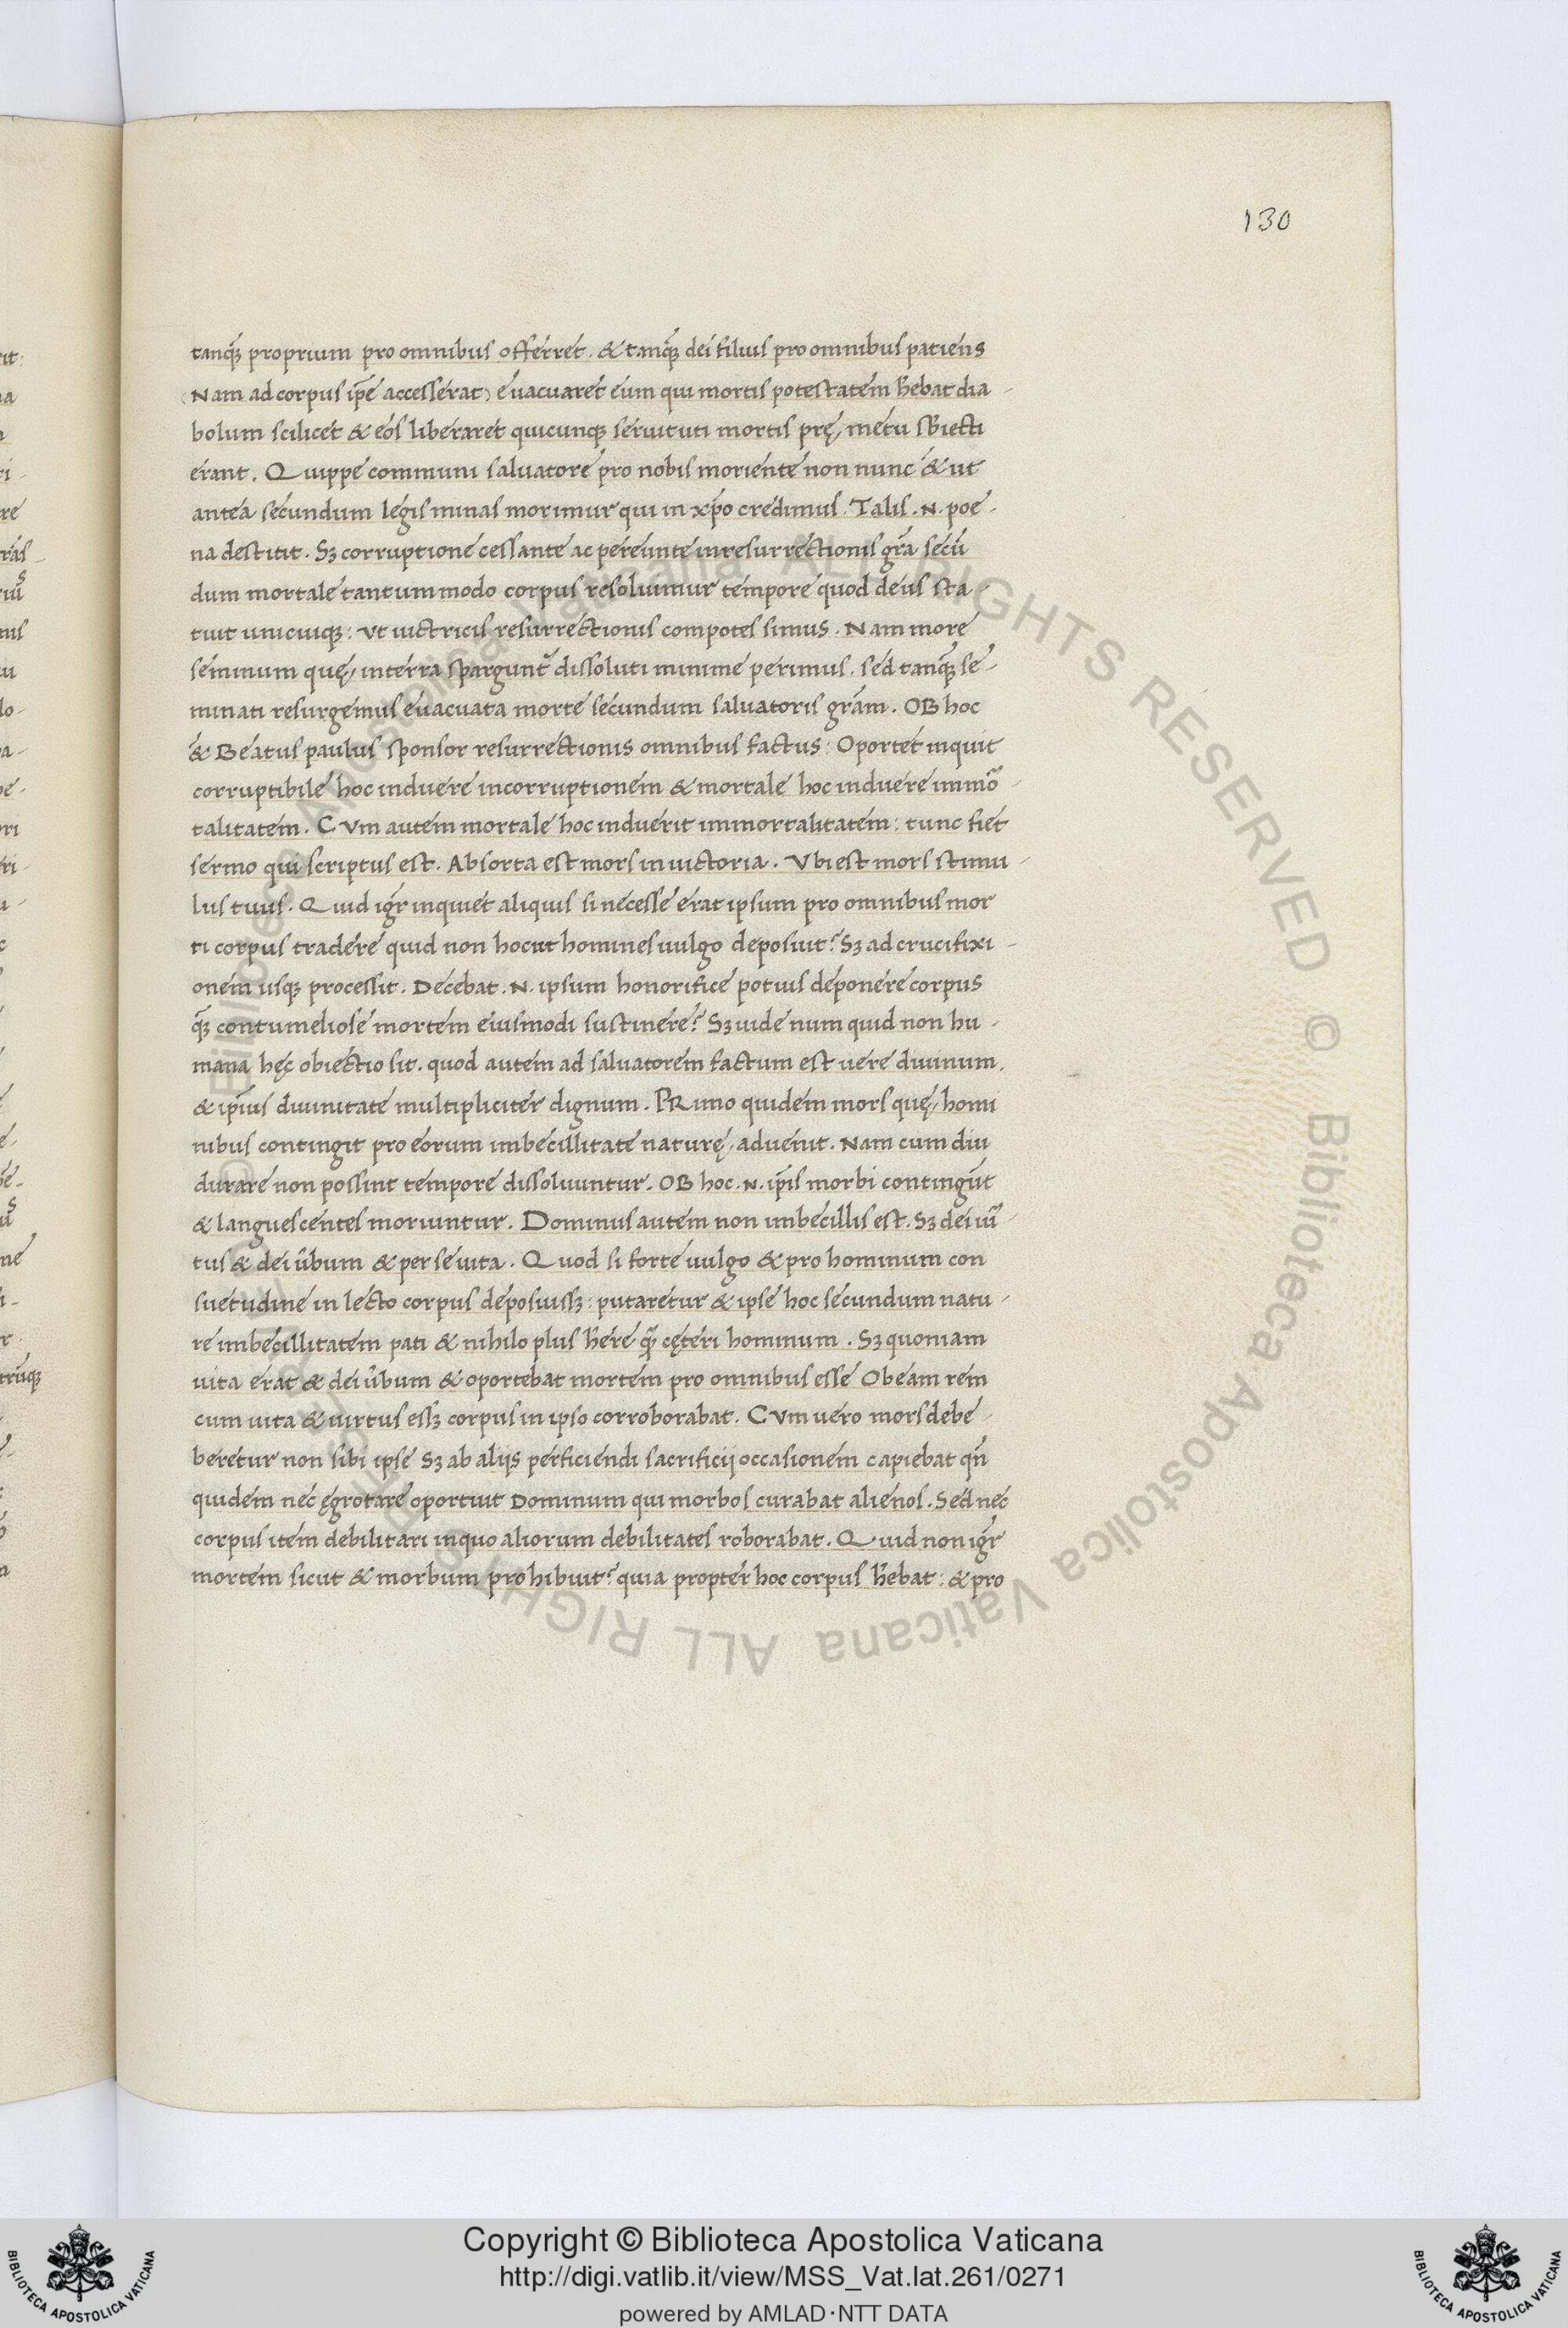 130
tanq̃ proprium pro omnibus offerret. & tanq̃ dei filius pro omnibus patiens
(Nam ad corpus ip̃e accesserat) evacuaret eum qui mortis potestatem h̃ebat dia-
bolum scilicet & eos liberaret quicunq; servituti mortis prę metu sb̃iecti
erant. Quippe communi salvatore pro nobis moriente non nunc & ut
antea secundum legis minas morimur qui in xp̃o credimus. Talis .N. poe-
na destitit. Sȝ corruptione cessante ac pereunte in resurrectionis gr̃a secũ
dum mortale tantummodo corpus resolvimur tempore quod deus sta-
tuit unicuiq;: ut victricis resurrectionis compotes simus. Nam more
seminum quę in terra spargunt᷑ dissoluti minime perimus. sed tanq̃ se-
minati resurgemus evacuata morte secundum salvatoris gr̃am. OB hoc
& Beatus paulus sponsor resurrectionis omnibus factus: Oportet inquit
corruptibile hoc induere incorruptionem & mortale hoc induere immõ-
talitatem. CVm autem mortale hoc induerit immortalitatem: tunc fiet
sermo qui scriptus est. Absorta est mors in victoria. Vbi est mors stimu-
lus tuus. Quid igr̃ inquiet aliquis si necesse erat ipsum pro omnibus mor
ti corpus tradere quid non hoc ut homines vulgo deposuit? Sȝ ad crucifixi-
onem usq; processit. Decebat .N. ipsum honorifice potius deponere corpus
q̃ȝ contumeliose mortem eiusmodi sustinere? Sȝ vide num quid non hu-
mana hęc obiectio sit. quod autem ad salvatorem factum est vere divinum.
& ip̃ius divinitate multipliciter dignum. PRimo quidem mors quę homi
nibus contingit pro eorum imbecillitate naturę advenit. Nam cum diu
durare non possint tempore dissolvuntur. OB hoc .N. ip̃is morbi contingũt
& languescentes moriuntur. Dominus autem non imbecillis est. Sȝ dei vir̃-
tus & dei ũbum & per se vita. Quod si forte vulgo & pro hominum con
suetudine in lecto corpus deposuissȝ: putaretur & ipse hoc secundum natu-
re imbecillitatem pati & nihilo plus h̃ere q̃ȝ cęteri hominum. Sȝ quoniam
vita erat & dei ũbum & oportebat mortem pro omnibus esse Ob eam rem
cum vita & virtus essȝ corpus in ipso corroborabat. CVm vero mors debe-
beretur non sibi ipse Sȝ ab aliis perficiendi sacrificij occasionem capiebat qñ
quidem nec ęgrotare oportuit Dominum qui morbos curabat alienos. Sed nec
corpus item debilitari in quo aliorum debilitates roborabat. Quid non igr̃
mortem sicut & morbum prohibuit? quia propter hoc corpus h̃ebat: & pro
© Biblioteca Apostolica Vaticana ALL RIGHTS RESERVED © Biblioteca Apostolica Vaticana ALL RIGHTS RESERVED
Copyright © Biblioteca Apostolica Vaticana
http://digi.vatlib.it/view/MSS_Vat.lat.261/0271
powered by AMLAD·NTT DATA
BIBLIOTECA APOSTOLICA VATICANA
BIBLIOTECA APOSTOLICA VATICANA